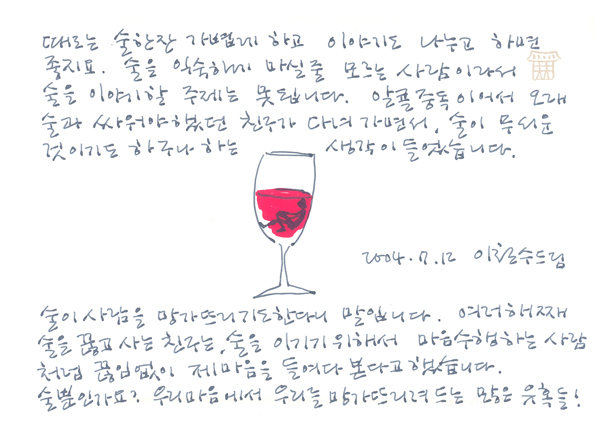 때로는 술한잔 가볍게 하고 이야기도 나누고 하면
좋지요. 술을 익숙하게 마실줄 모르는 사람이라서
술을 이야기할 주제는 못됩니다. 알콜중독이어서 오래
술과 싸워야했던 친구가 다녀 가면서, 술이 무서운
것이기도 하구나 하는 생각이 들었습니다.
2004.7.12 이철수드림
술이 사람을 망가뜨리기도한다니 말입니다. 여러해째
술을 끊고 사는 친구는, 술을 이기기 위해서 마음수행하는 사람
처럼 끊임없이 제마음을 들여다 본다고 했습니다.
술뿐인가요? 우리마음에서 우리를 망가뜨리려 드는 많은 유혹들!